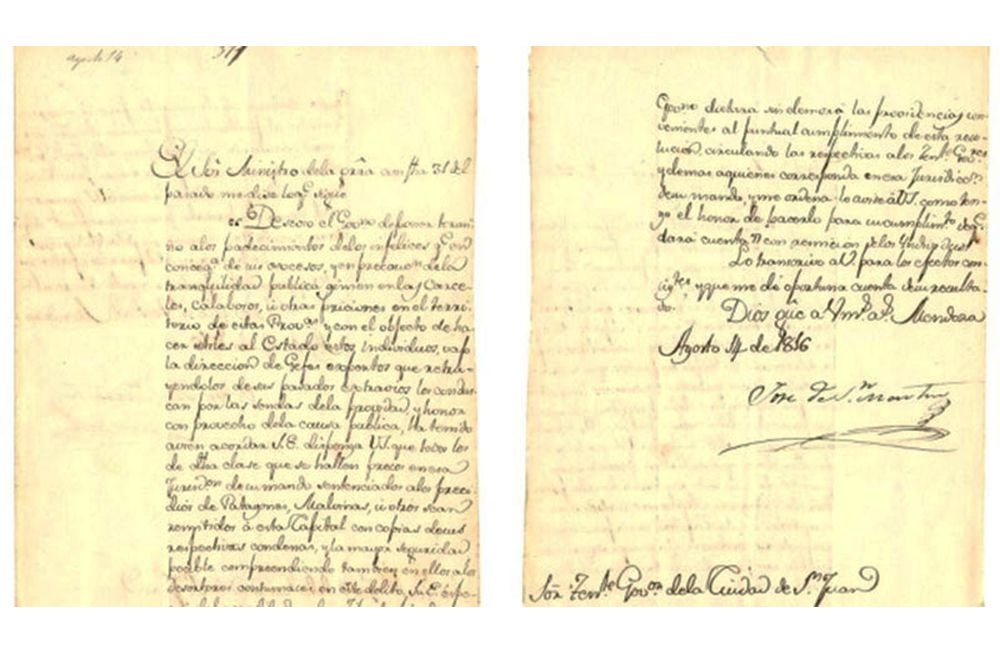 agosto 14
317
El Sōr Ministro dela grrā con fha 31 del
pasado me dice loqe. sigue
"Deseoso el Govno. de poner termi-
no alos padecimientos delos infelices qe. en
de sus excesos, y en precaucn. dela
tranquilidad publica gimen en las Carce-
les, Calabosos, ú otras priciones en el terri-
torio de estas Provas. y con el objecto de ha-
cer utiles al Estado estos individuos, vajo
la direccion de Gefes expertos que retra-
yendolos de sus pasados extravios los condus-
can por las sendas dela providad, y honor
con provecho dela causa publica, Ha tenido
avien acordar S.E. disponga VS. que todos los
de dha clase que se hallen presos en esa
Jurisdon. de su mando sentenciados alos presi-
dios de Patagones, Malvinas, ú otros sean
remitidos á esta Capital con copias desus
respectivas condenas, y la mayor seguridad
posible comprendiendo tambien en ellos alos
desertores contumaces en este delito, S.E. espe-
Govno. dictara sin demora las providencias con-
venientes al puntual cumplimento de esta reso-
lucion, circulando las respectivas alos Tente. Gores
y demas aquienes corresponda en esa Jurisdiccn.
desu mando, y me ordena lo avise áVS. como ten-
go el honor de hacerlo para su cumplimto.
dará cuenta con remision delos Individuos"
Lo transcrivo aV. para los efectos con-
sigtes. y que me dé oportuna cuenta desu resulta-
do.
Dios gūe a Vmd. as. as. Mendoza
Agosto 14 de 1816
José de Sn. Martin
Sōr. Tente. Govor. dela Ciudad de Sn. Juan